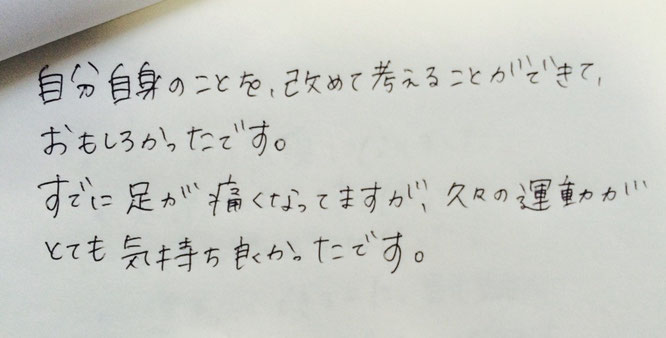 自分自身のことを、改めて考えることができて、
おもしろかったです。
すでに足が痛くなってますが、久々の運動が
とても気持ち良かったです。